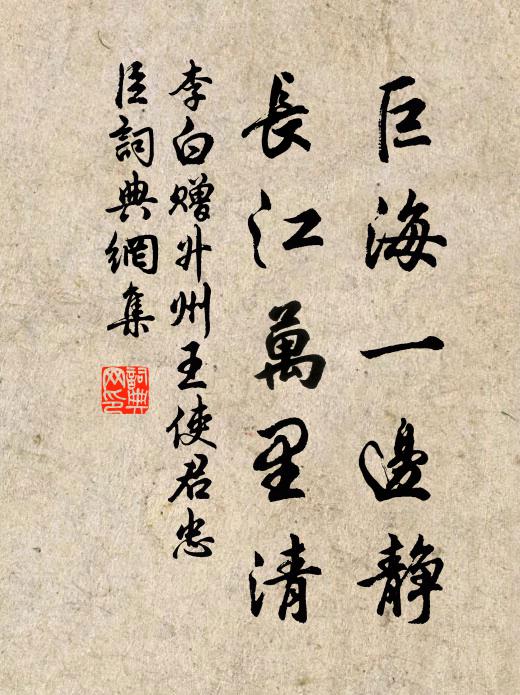 巨海一邊静
長江萬里清
李白贈升州王使君忠
臣詞典網集
詞典
网印